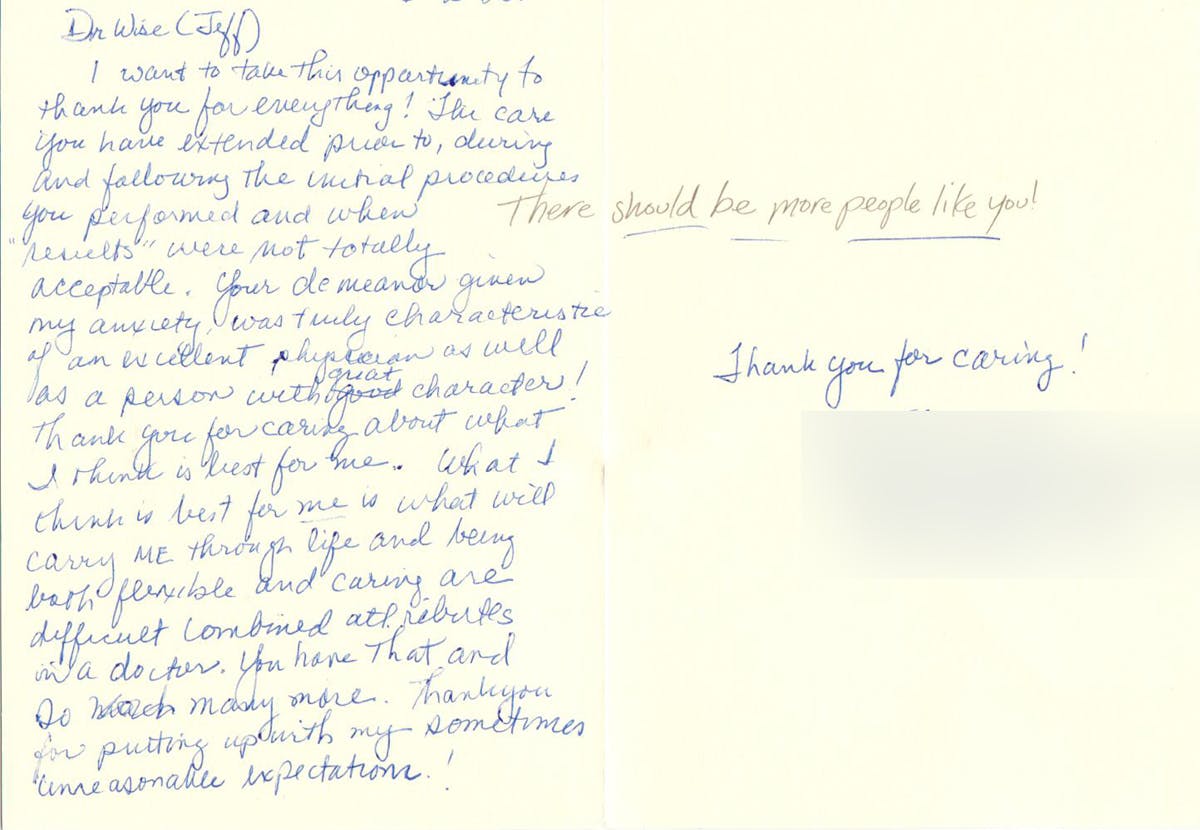 Dr Wise (Jeff)
I want to take this opportunity to
thank you for everything! The care
you have extended prior to, during
and following the initial procedures
you performed and when
"results" were not totally
acceptable. Your demeanor given
my anxiety, was truly characteristic
of an excellent physician as well
as a person with great good character!
Thank you for caring about what
I think is best for me. What I
think is best for me is what will
carry ME through life and being
both flexible and caring are
difficult combined attributes
in a doctor. You have that and
so many more. Thank you
for putting up with my sometimes
unreasonable expectations!
There should be more people like you!
Thank you for caring!